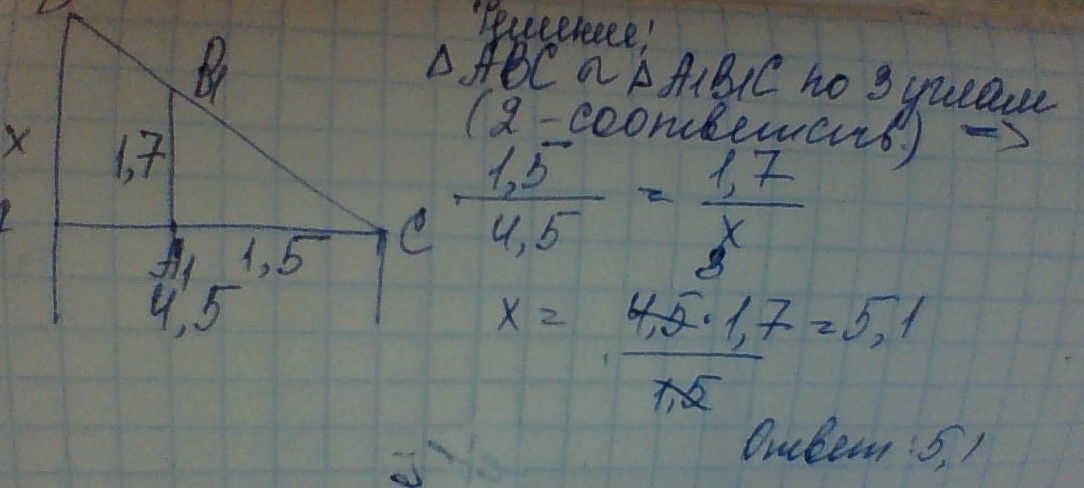 B1
x
1,7
C
A1 1,5
4,5
Решение:
△ABC ∾ △A1B1C по 3 углам
(2 - соответств.) =>
1,5/4,5 = 1,7/x
3
x = 4,5·1,7/1,5 = 5,1
Ответ: 5,1